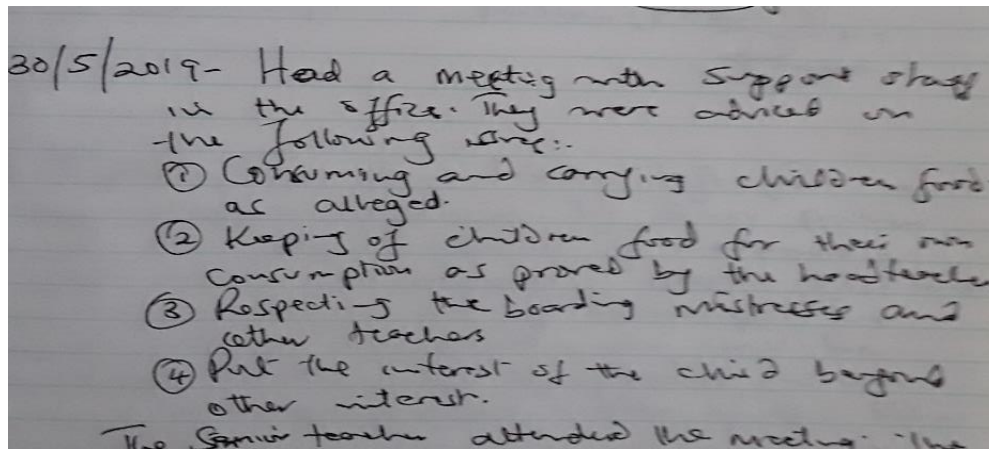 30/5/2019- Head a meeting with support staff
in the office. They were adviced on
the following
① Consuming and carrying children food
as alleged.
② Keeping of children food for their own
consumption as proved by the headteache
③ Respecting the boarding mistresses and
other teachers
④ Put the interest of the child beyond
other interest.
The Senior teacher attended the meeting. The